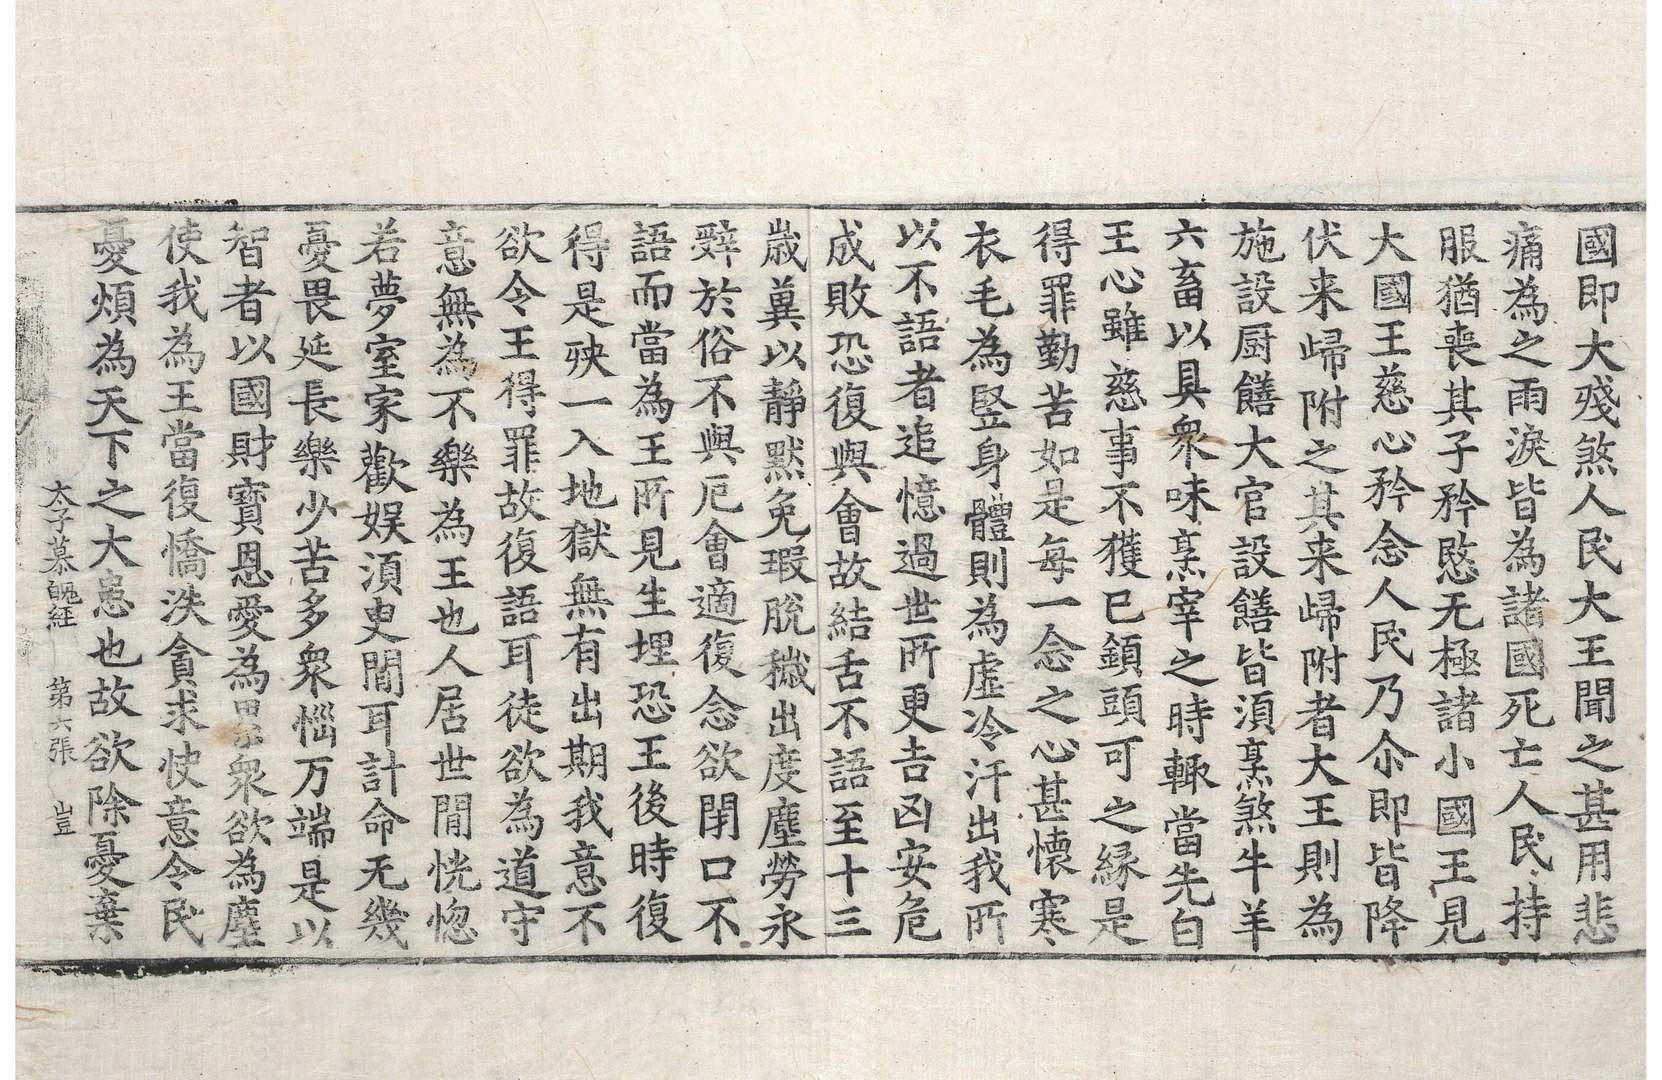 國即大殘煞人民大王聞之甚用悲
痛為之雨淚皆為諸國死亡人民持
服猶喪其子矜愍无極諸小國王見
大國王慈心矜念人民乃尒即皆降
伏来歸附之其来歸附者大王則為
施設厨饍大官設饍皆湏烹煞牛羊
六畜以具衆味烹宰之時輙當先白
王心雖慈事不獲已鎖頭可之縁是
得罪勤苦如是每一念之心甚懷寒
衣毛為竪身體則為虛冷汗出我所
以不語者追憶過世所更吉凶安危
成敗恐復與會故結舌不語至十三
歲兾以靜默免瑕脫穢出度塵勞永
辤於俗不與厄會適復念欲閇口不
語而當為王所見生埋恐王後時復
得是殃一入地獄無有出期我意不
欲令王得罪故復語耳徒欲為道守
意無為不樂為王也人居世閒恍惚
若夢室家歡娛湏臾閒耳計命无幾
憂畏延長樂少苦多衆惱万端是以
智者以國財寶恩愛為累衆欲為塵
使我為王當復憍泆貪求快意令民
憂煩為天下之大患也故欲除憂棄
太子慕魄経 第六張 豈